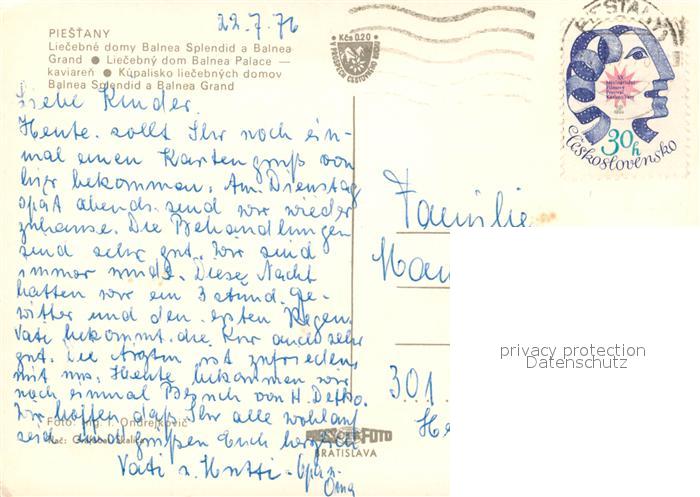 22.7.76
PIEŠŤANY
Liečebné domy Balnea Splendid a Balnea
Grand ● Liečebný dom Balnea Palace —
kaviareň ● Kúpalisko liečebných domov
Balnea Splendid a Balnea Grand
Kčs 0.20
PIEŠŤANY
30h
Československo
Liebe Kinder.
Heute sollt Ihr noch ein-
mal einen Kartengruß von
hier bekommen. Am Dienstag
spät abends sind wir wieder
zuhause. Die Behandlungen
sind sehr gut. Wir sind
immer müde. Diese Nacht
hatten wir ein 3 stünd. Ge-
witter und den ersten Regen.
Vati bekommt die Kur auch sehr
gut. Die Ärztin ist zufrieden
mit uns. Heute bekommen wir
noch einmal Besuch von H.
Wir hoffen daß Ihr alle wohlauf
seid und grüßen Euch herzlich
Vati u. Mutti - Opa u.
Oma
Familie
301
He
Foto: Ing. I. Ondrejkovič
PRESSFOTO
BRATISLAVA
privacy protection
Datenschutz